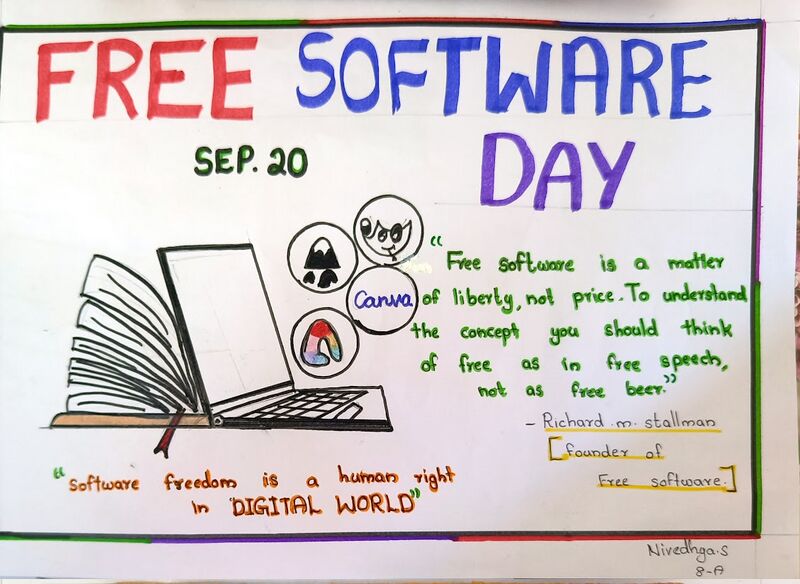 FREE SOFTWARE
DAY
SEP. 20
Canva
“Free software is a matter
of liberty, not price. To understand
the concept you should think
of free as in free speech,
not as free beer.”
- Richard .m. stallman
[founder of
Free software.]
“Software freedom is a human right
in DIGITAL WORLD”
Nivedhga.S
8-A